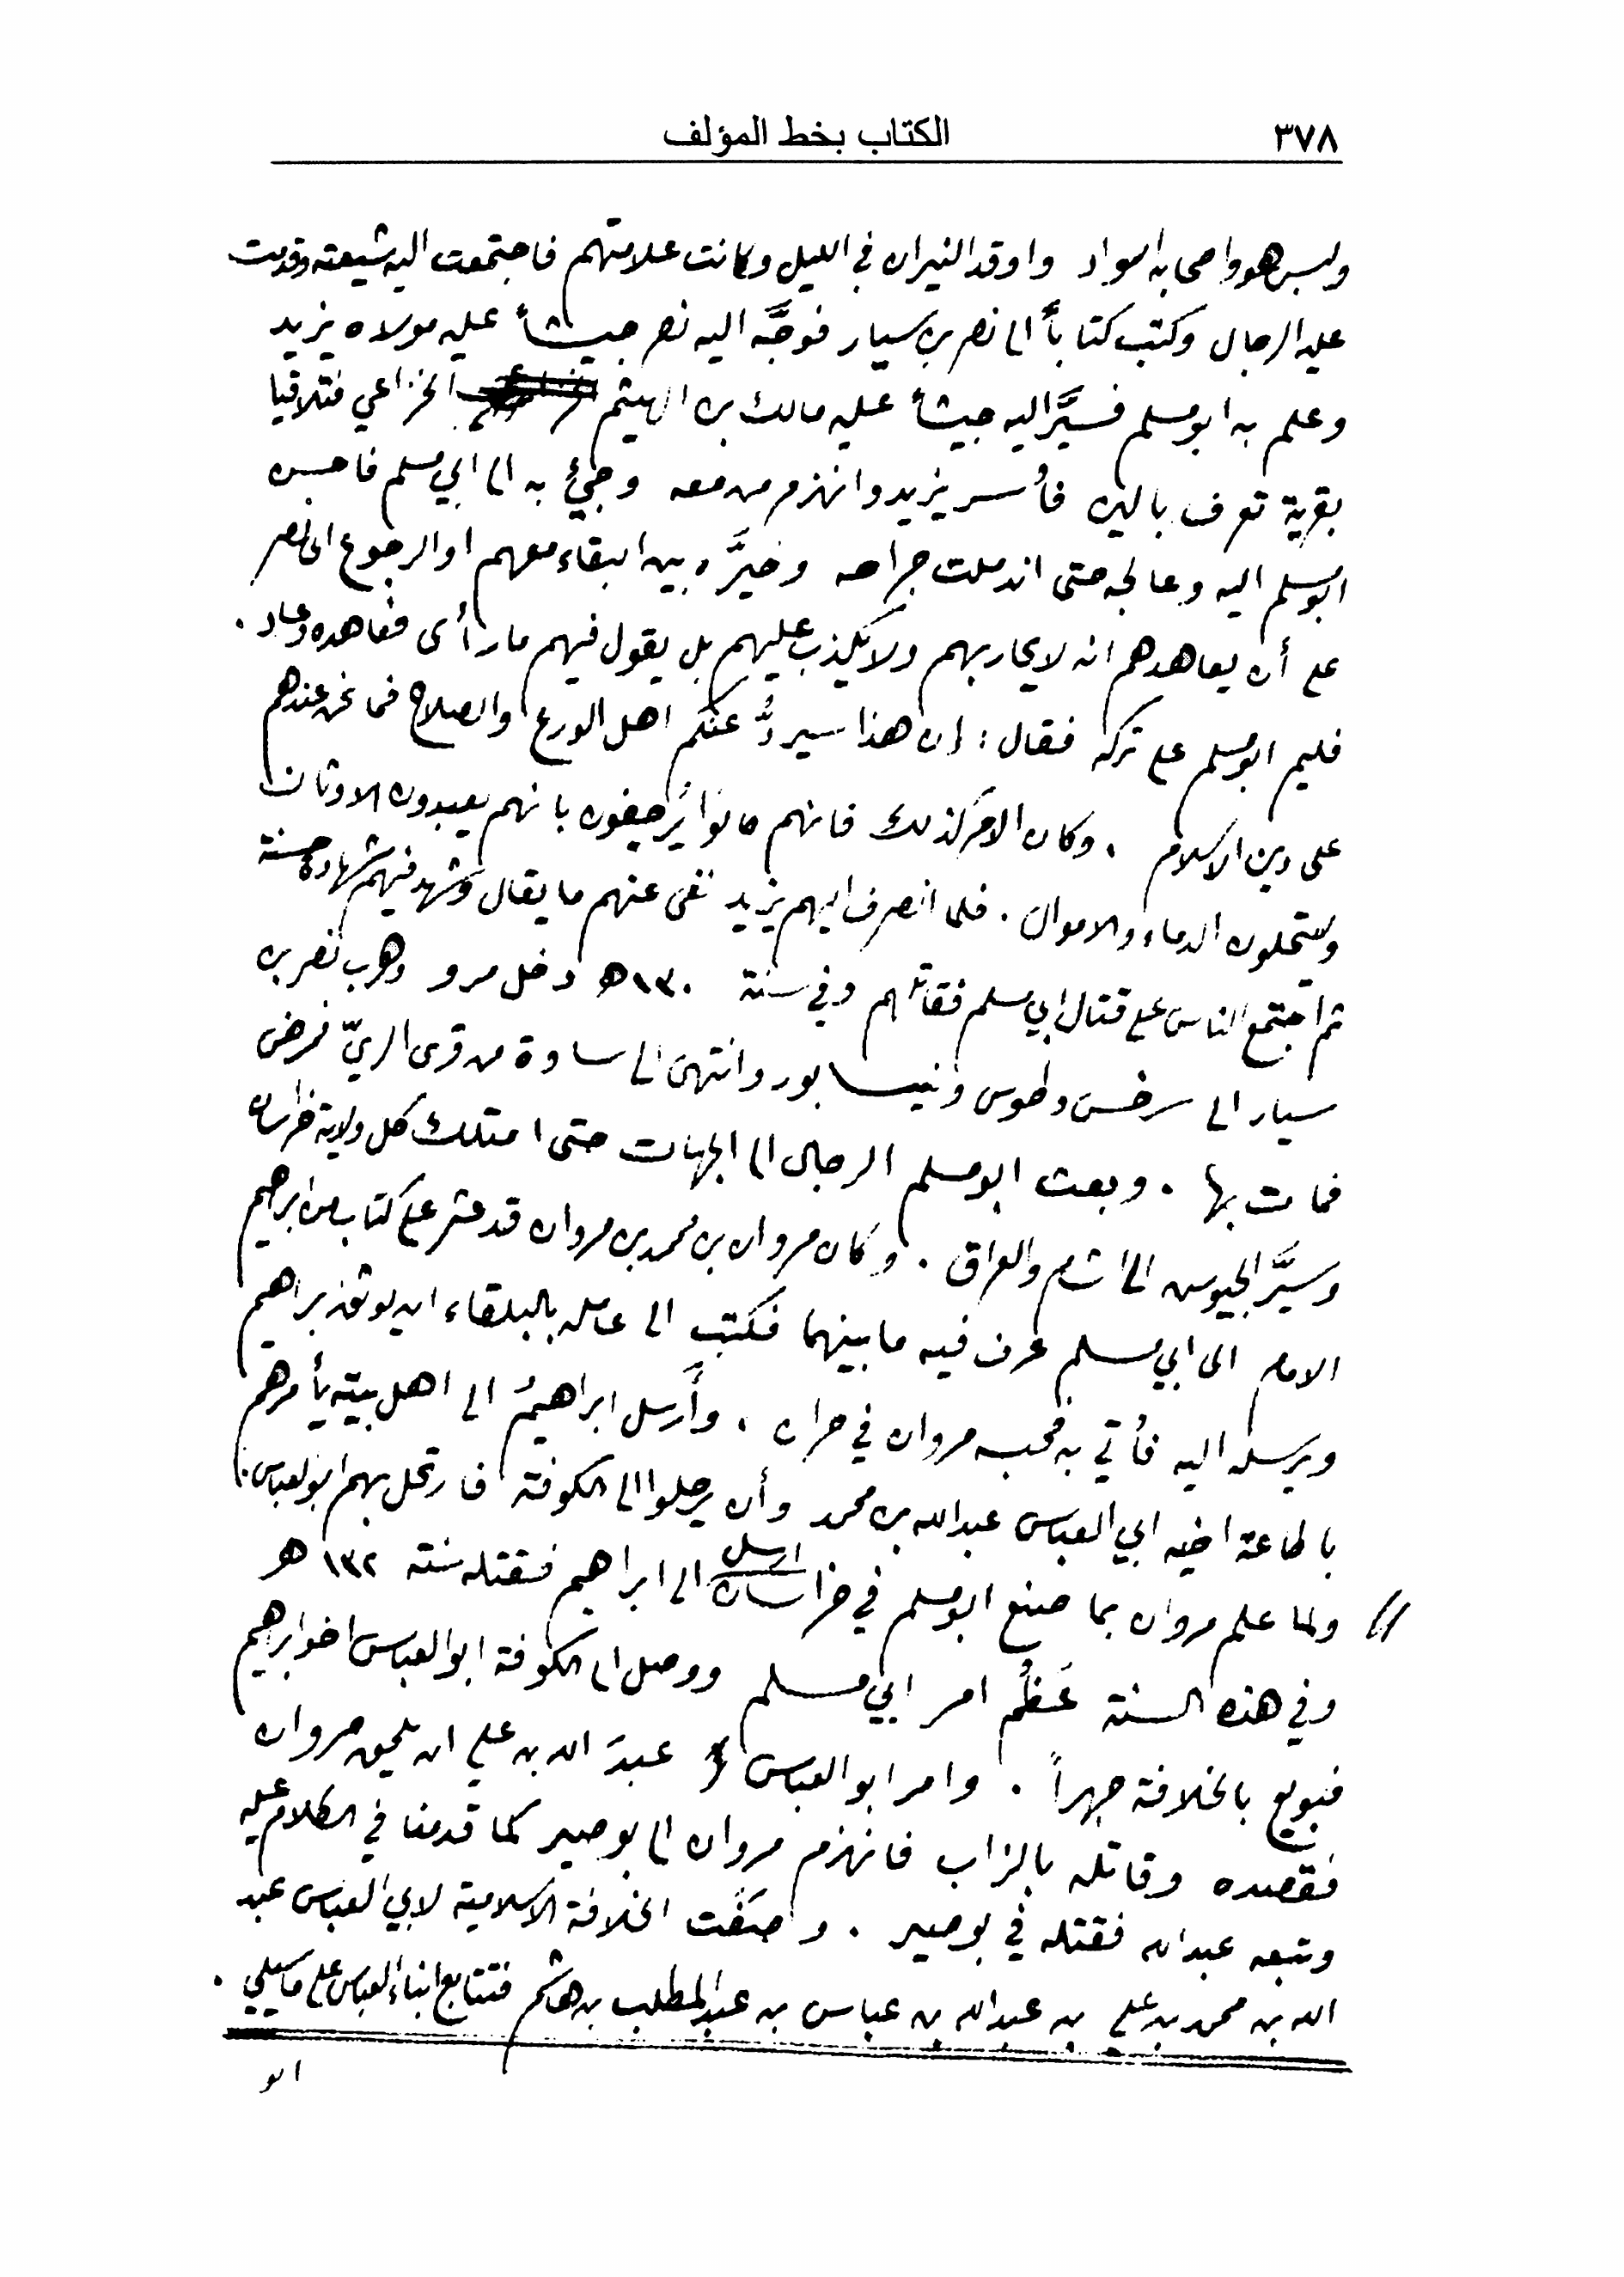 ٣٧٨ الكتاب بخط المؤلف
ولبس هو واصحابه السواد واوقد النيران في الليل وكانت علامتهم فاجتمعت اليه شيعته وقدمت
عليه الرجال وكتب كتاباً الى نصر بن سيار فوجَّه اليه نصر جيشاً عليه مولاه يزيد
وعلم به ابو مسلم فسيَّر اليه جيشاً عليه مالك بن الهيثم الخزاعي فتلاقيا
بقرية تعرف بالين فأُسر يزيد وانهزم من معه وجيئ به الى ابي مسلم فاحسن
ابو مسلم اليه وعالجه حتى اندملت جراحه وخيَّره بين البقاء معهم او الرجوع الى نصر
على أن يعاهدهم انه لا يحاربهم ولا يكذب عليهم بل يقول فيهم ما رأى فعاهده وعاد .
فليم ابو مسلم على تركه فقال : إن هذا سيردُّ عنكم اهل الورع والصلاح فما نحن عندهم
على دين الاسلام . وكان الامر كذلك فانهم كانوا يُرجفون بانهم يعبدون الاوثان
ويستحلون الدماء والاموال . فلما انصرف اليهم يزيد نفى عنهم ما يقال وشهد فيهم شهادة حسنة
ثم اجتمع الناس على قتال ابي مسلم فقاتلهم وفي سنة ١٣٠ هـ دخل مرو وهرب نصر بن
سيار الى سرخس وطوس ونيسابور وانتهى الى ساوة من قرى الريّ فمرض
فمات بها . وبعث ابو مسلم الرجال الى الجهات حتى امتلك كل ولاية خراسان
وسيَّر الجيوش الى الشام والعراق . وكان مروان بن محمد بن مروان قد عثر على كتاب من ابراهيم
الامام الى ابي مسلم عرف فيه ما بينهما فكتب الى عامله بالبلقاء ان يوثق ابراهيم
ويرسله اليه فأُتي به فحبسه مروان في حران . وأَرسل ابراهيمُ الى اهل بيته يأمرهم
بالطاعة لاخيه ابي العباس عبدالله بن محمد وأن يرحلوا الى الكوفة فارتحل بهم ابو العباس .
// ولما علم مروان بما صنع ابو مسلم في خراسان ارسل الى ابراهيم فقتله سنة ١٣٢ هـ
وفي هذه السنة عَظُم امر ابي مسلم ووصل الى الكوفة ابو العباس اخو ابراهيم
فبويع بالخلافة جهراً . وامر ابو العباس عبدَ الله بن علي ان يلحق مروان
فقصده وقاتله بالزاب فانهزم مروان الى بوصير كما قدمنا في الكلام عليه
وتبعه عبدالله فقتله في بوصير . وصَفَت الخلافة الاسلامية لابي العباس عبد
الله بن محمد بن علي بن عبدالله بن عباس بن عبد المطلب بن هاشم فتتابع ابناء العباس على ما يلي .
ابو